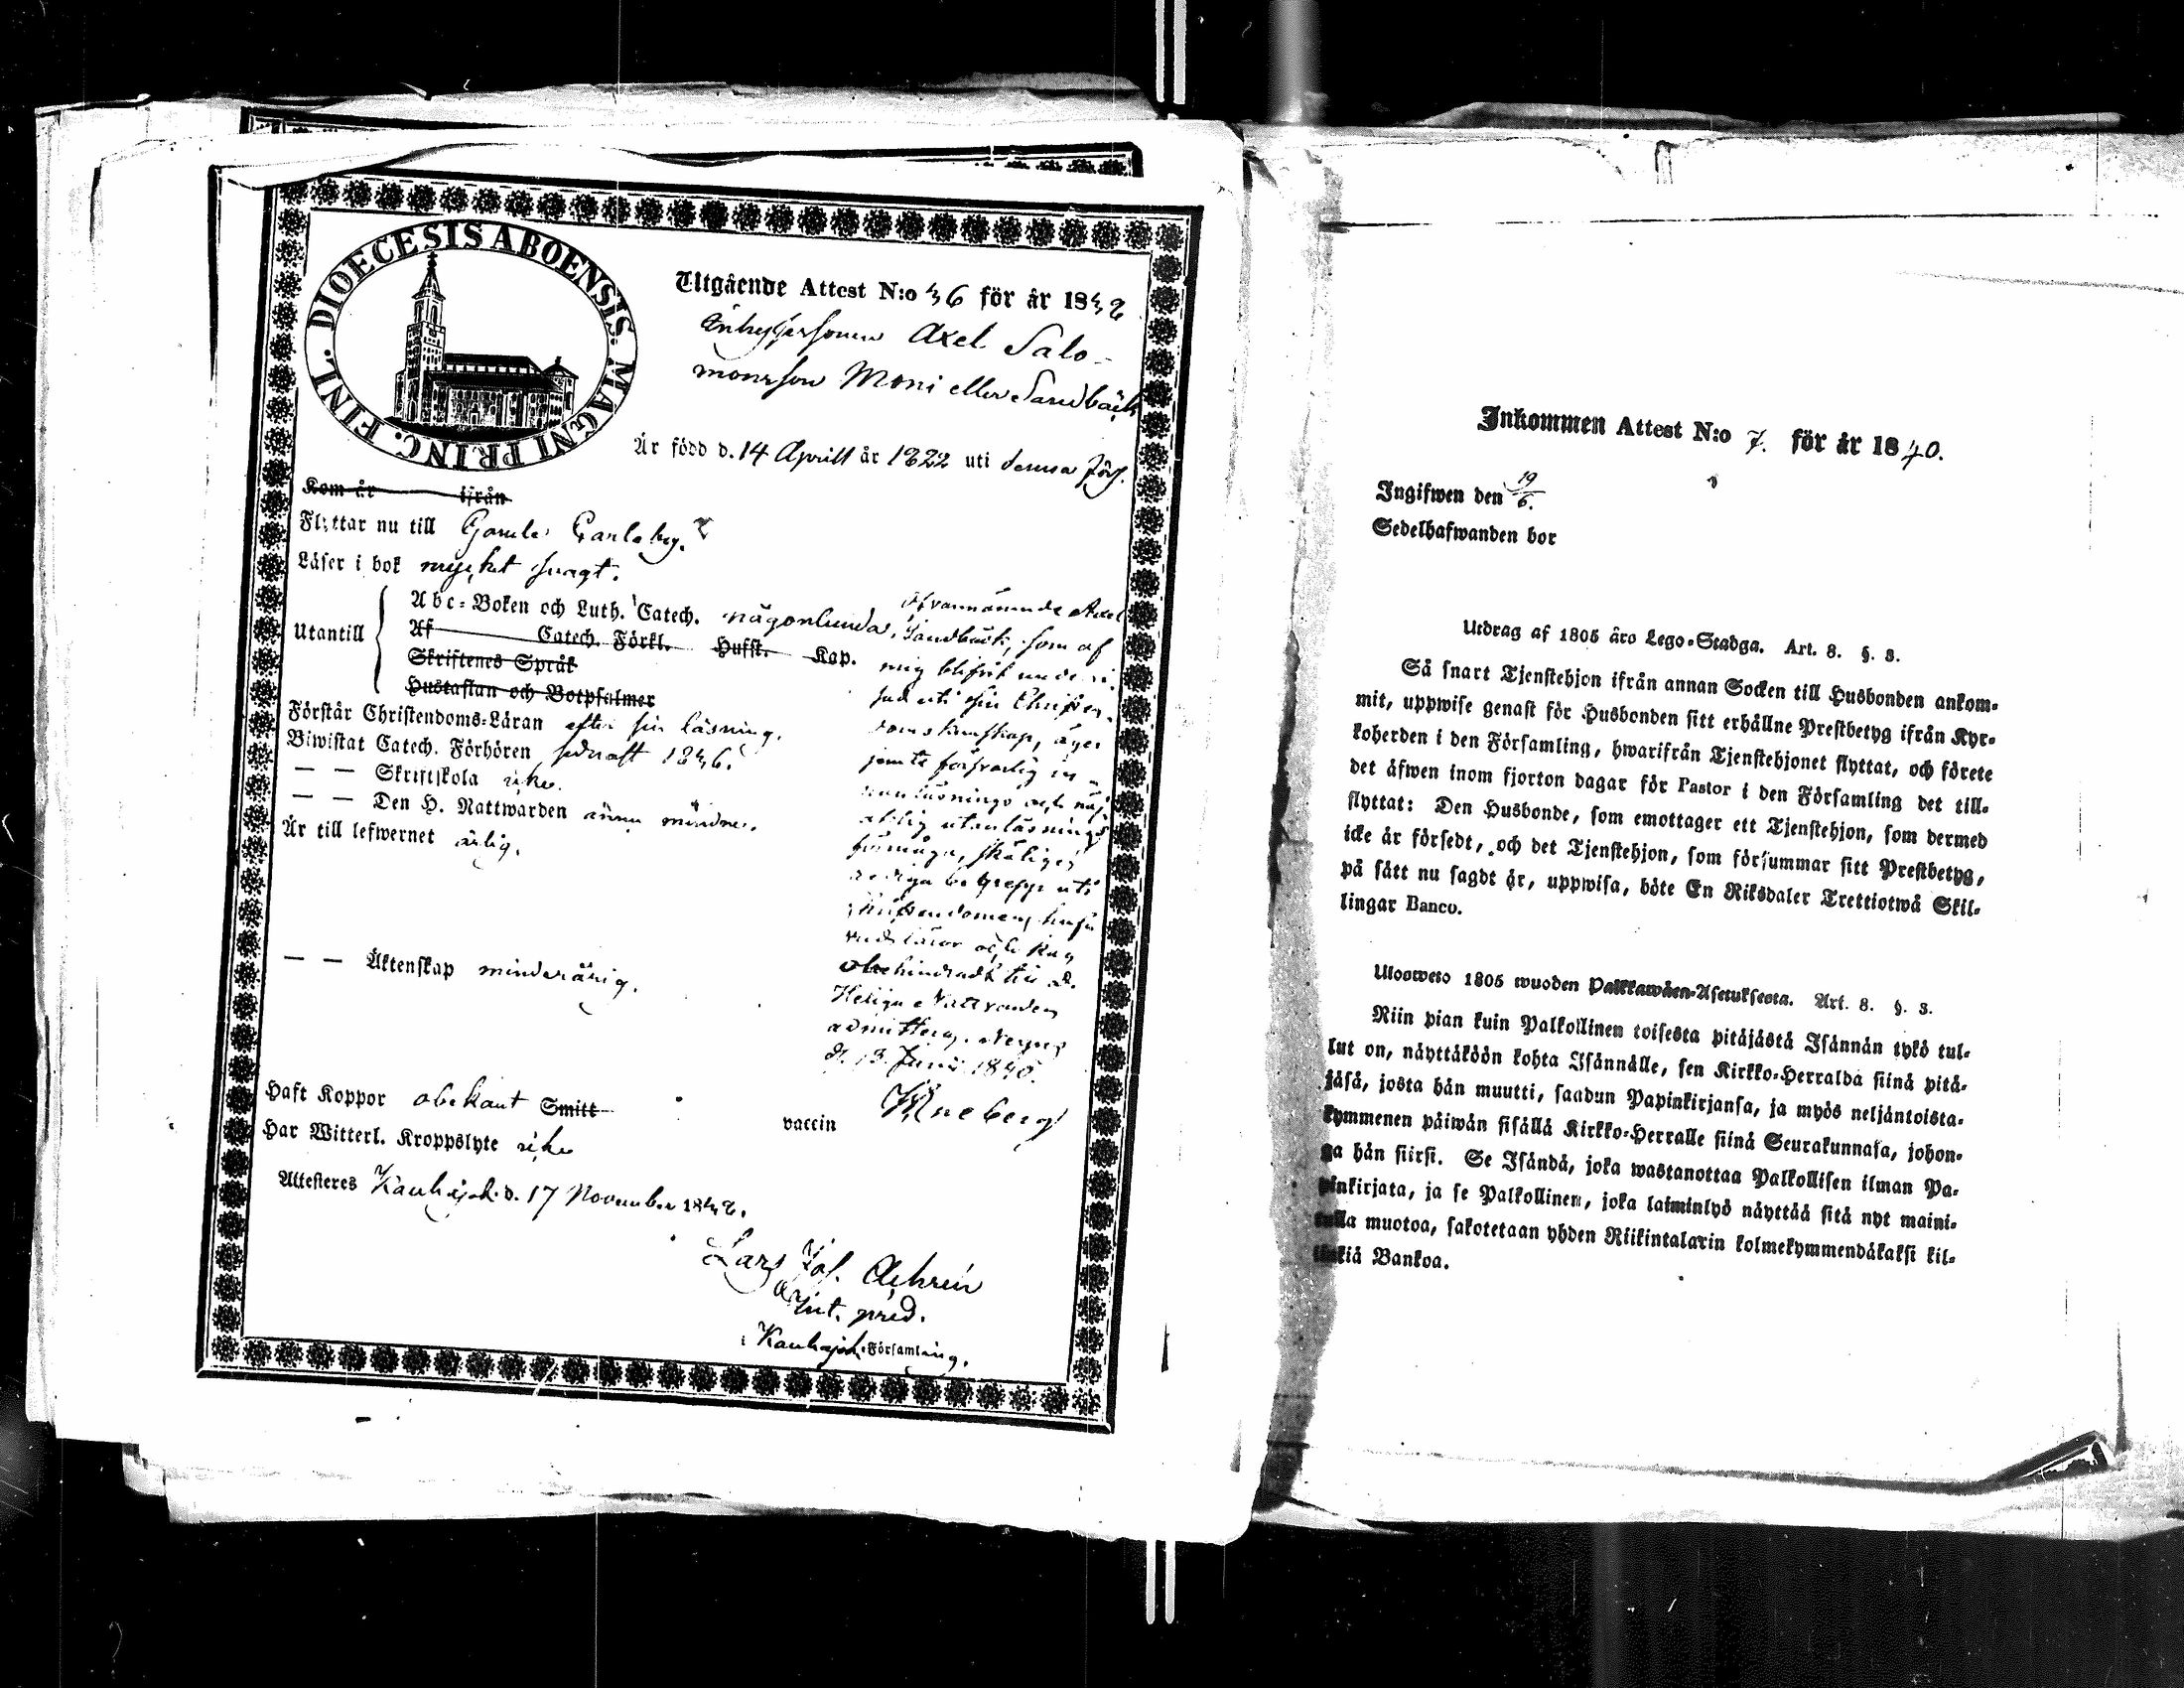 DIOECESIS ABOENSIS. MAGNI PRINC. FINL.
Utgående Attest N:o 36 för år 1838
Axel Salo-
monsson Moni eller Sandbäck
Är född d. 14 Aprill år 1822 uti denna förs.
Kom år ifrån
Flyttar nu till Gamle Carleby.
Läser i bok mycket svagt.
Utantill
Abc-Boken och Luth. Catech. någonlunda.
Af Catech. Förkl. Husst. Kap.
Skriftenes Språk
Hustaflan och Botpsalmer
Förstår Christendoms-Läran efter sin läsning.
Biwistat Catech. Förhören sednast 1836.
— — Skriftskola icke.
— — Den H. Nattwarden ännu mindre.
Är till lefwernet ärlig.
— — Äktenskap minderårig.
Haft Koppor obekant Smitt vaccin
Har Witterl. Kroppslyte icke
Attesteres Kauhajok. d. 17 November 1838.
Lars Joh.
pred.
Kauhajok. Församling.
Ofvannämnde Axel
Sandbäck, som af
mig blifvit undervi-
sad uti sin Christen-
domskunskap, äger
jemte försvarlig in-
nanläsnings och
utanläsnings
förmåga, skäliga
begrepp uti
Christendomens huf-
vudläror och kan
obehindradt till d.
Heliga Nattvarden
admitteras.
d. 13 Junii 1840.
Inkommen Attest N:o 7. för år 1840.
Ingifwen den 19/6.
Sedelhafwanden bor
Utdrag af 1805 års Lego-Stadga. Art. 8. §. 3.
Så snart Tjenstehjon ifrån annan Socken till Husbonden ankom-
mit, uppwise genast för Husbonden sitt erhållne Prestbetyg ifrån Kyr-
koherden i den Församling, hwarifrån Tjenstehjonet flyttat, och förete
det äfwen inom fjorton dagar för Pastor i den Församling det till-
flyttat: Den Husbonde, som emottager ett Tjenstehjon, som dermed
icke är försedt, och det Tjenstehjon, som försummar sitt Prestbetyg,
på sätt nu sagdt är, uppwisa, böte En Riksdaler Trettiotwå Skil-
lingar Banco.
Uloswets 1805 wuoden Palkkawäen-Asetuksesta. Art. 8. §. 3.
Niin pian kuin Palkollinen toisesta pitäjästä Isännän tykö tul-
lut on, näyttäköön kohta Isännälle, sen Kirkko-Herralda siinä pitä-
jäsä, josta hän muutti, saadun Papinkirjansa, ja myös neljäntoista-
kymmenen päiwän sisällä Kirkko-Herralle siinä Seurakunnasa, johon-
ga hän siirsi. Se Isändä, joka wastanottaa Palkollisen ilman Pa-
pinkirjata, ja se Palkollinen, joka laiminlyö näyttää sitä nyt maini-
tulla muotoa, sakotetaan yhden Riikintalarin kolmekymmendäkaksi kil-
linkiä Bankoa.